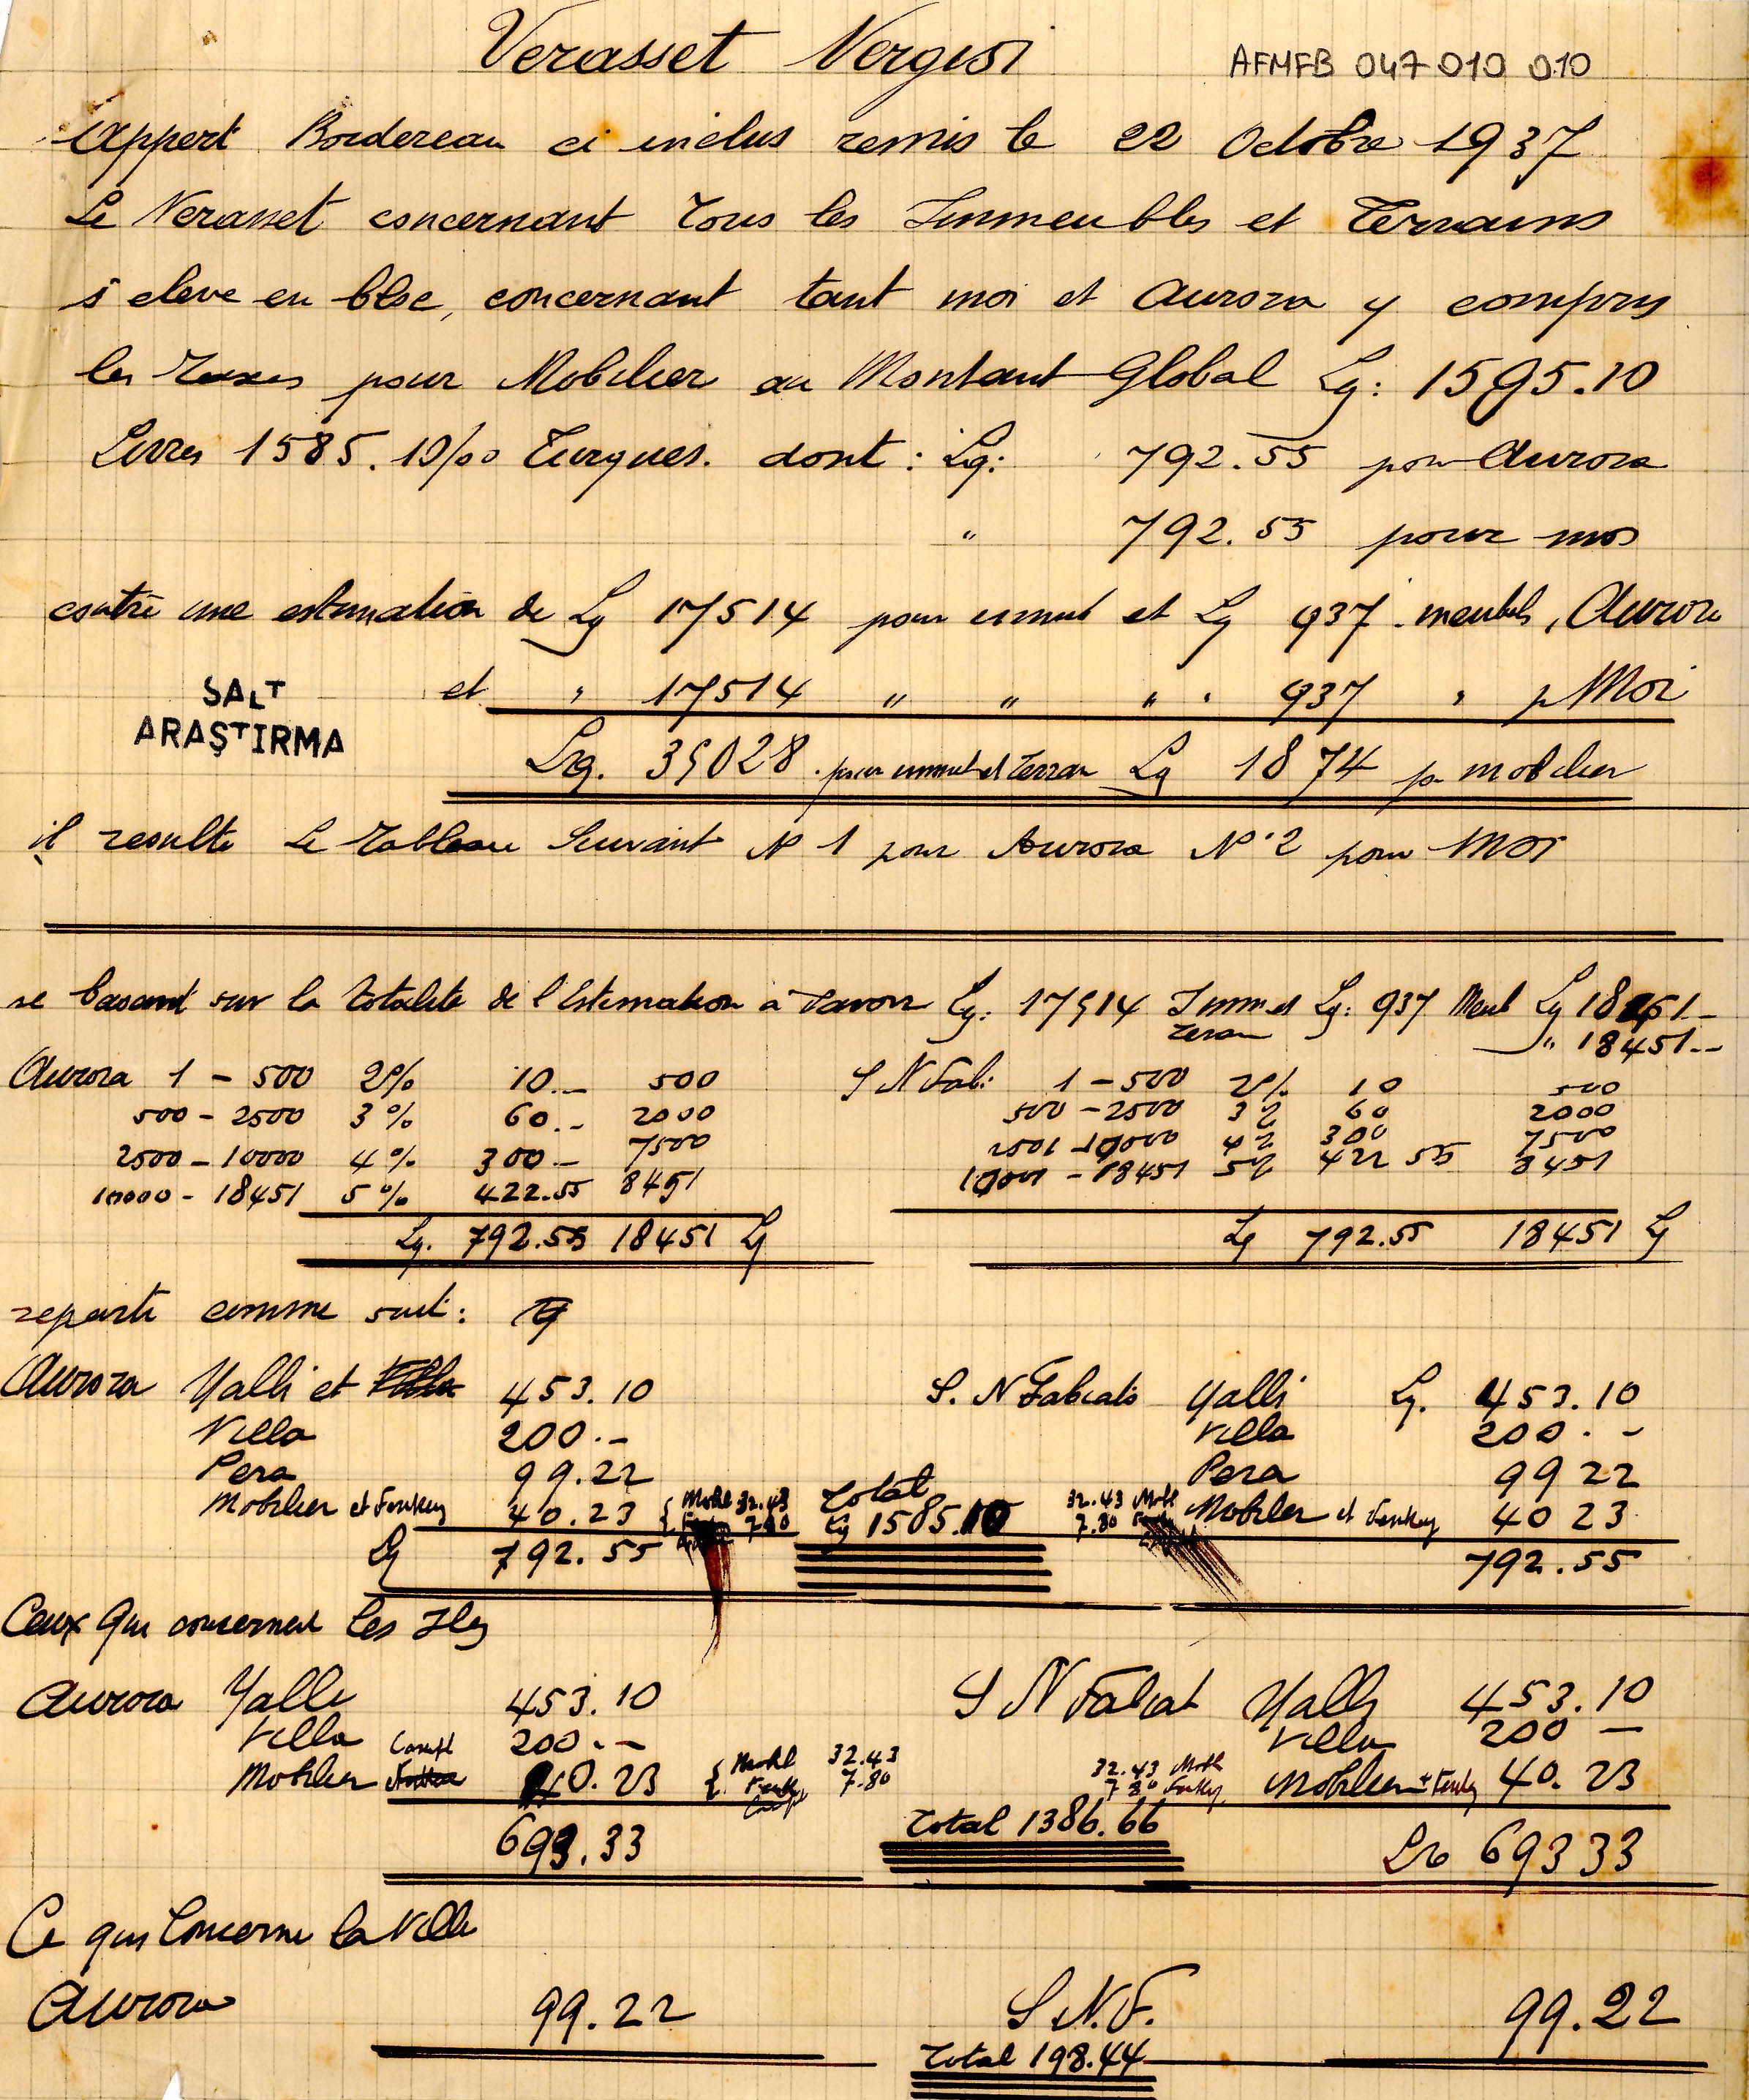 Verasset Vergisi
AFMFB 047 010 010
Appert Bordereau ci inclus remis le 22 Octobre 1937
Le Verasset concernant tous les Immeubles et Terrains
s eleve en bloc, concernant tant moi et Aurora y compris
les Taxes pour Mobilier au Montant Global Lq: 1585.10
Livres 1585.10/00 Turques. dont : Lq: 792.55 pour Aurora
" 792.55 pour moi
contre une estimation de Lq 17514 pour immeub et Lq 937 . meubles, Aurora
et " 17514 " " " " 937 " p Moi
SALT
ARAŞTIRMA
Ltq. 35028 . pour immeub et Terrain Lq 1874 pr mobilier
il resulte Le Tableau Suivant N 1 pour Aurora N° 2 pour Moi
se basant sur la totalite de l'Estimation a Savoir Lq: 17514 Imm et Lq: 937 Meub Lq 18451.-
Terrain
" 18451.--
Aurora 1 - 500 2% 10.- 500 S N Fab: 1 - 500 2% 10 500
500 - 2500 3% 60.- 2000 500 - 2500 3% 60 2000
2500 - 10000 4% 300.- 7500 2501 - 10000 4% 300 7500
10000 - 18451 5% 422.55 8451 10001 - 18451 5% 422 55 8451
Lq. 792.55 18451 Lq Lq 792.55 18451 Lq
reparti comme suit:
Aurora Yalli et 453.10 S. N Fabiato Yalli Lq. 453.10
Villa 200.- Villa 200.-
Pera 99.22 Pera 99 22
Mobilier et Tenkey 40.23 { Mobl 32.43 Total 32.43 Mobl Mobilier et Tenkey 40 23
7.80 Lq 1585.10 7.80
Lq 792.55 792.55
Ceux qui concernent Les Iles
Aurora Yalli 453.10 S N Fabiat Yalli 453.10
Villa 200.- Villa 200 -
Mobilier 40.23 { Mobl 32.43 32.43 Mobl Mobilier + Tenkey 40.23
7.80 7 80 Tenkey
693.33 Total 1386.66 Lq 693 33
Ce qui Concerne la Ville
Aurora 99.22 S N.F. 99.22
Total 198.44